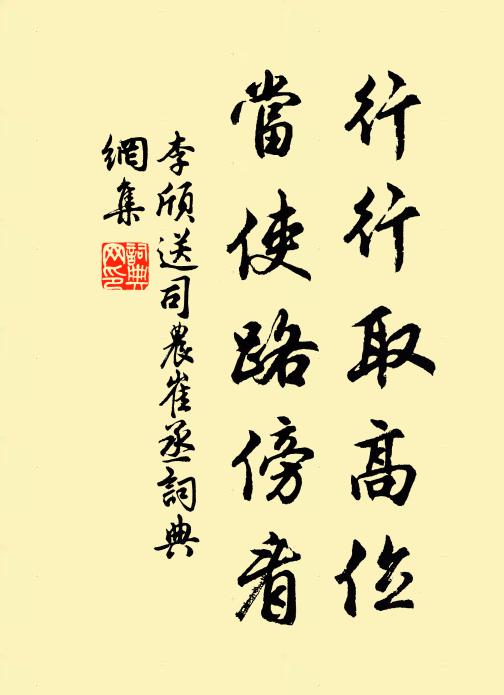 行行取高位
當使路傍看
李頎送司農崔丞詞典
網集
詞典網印